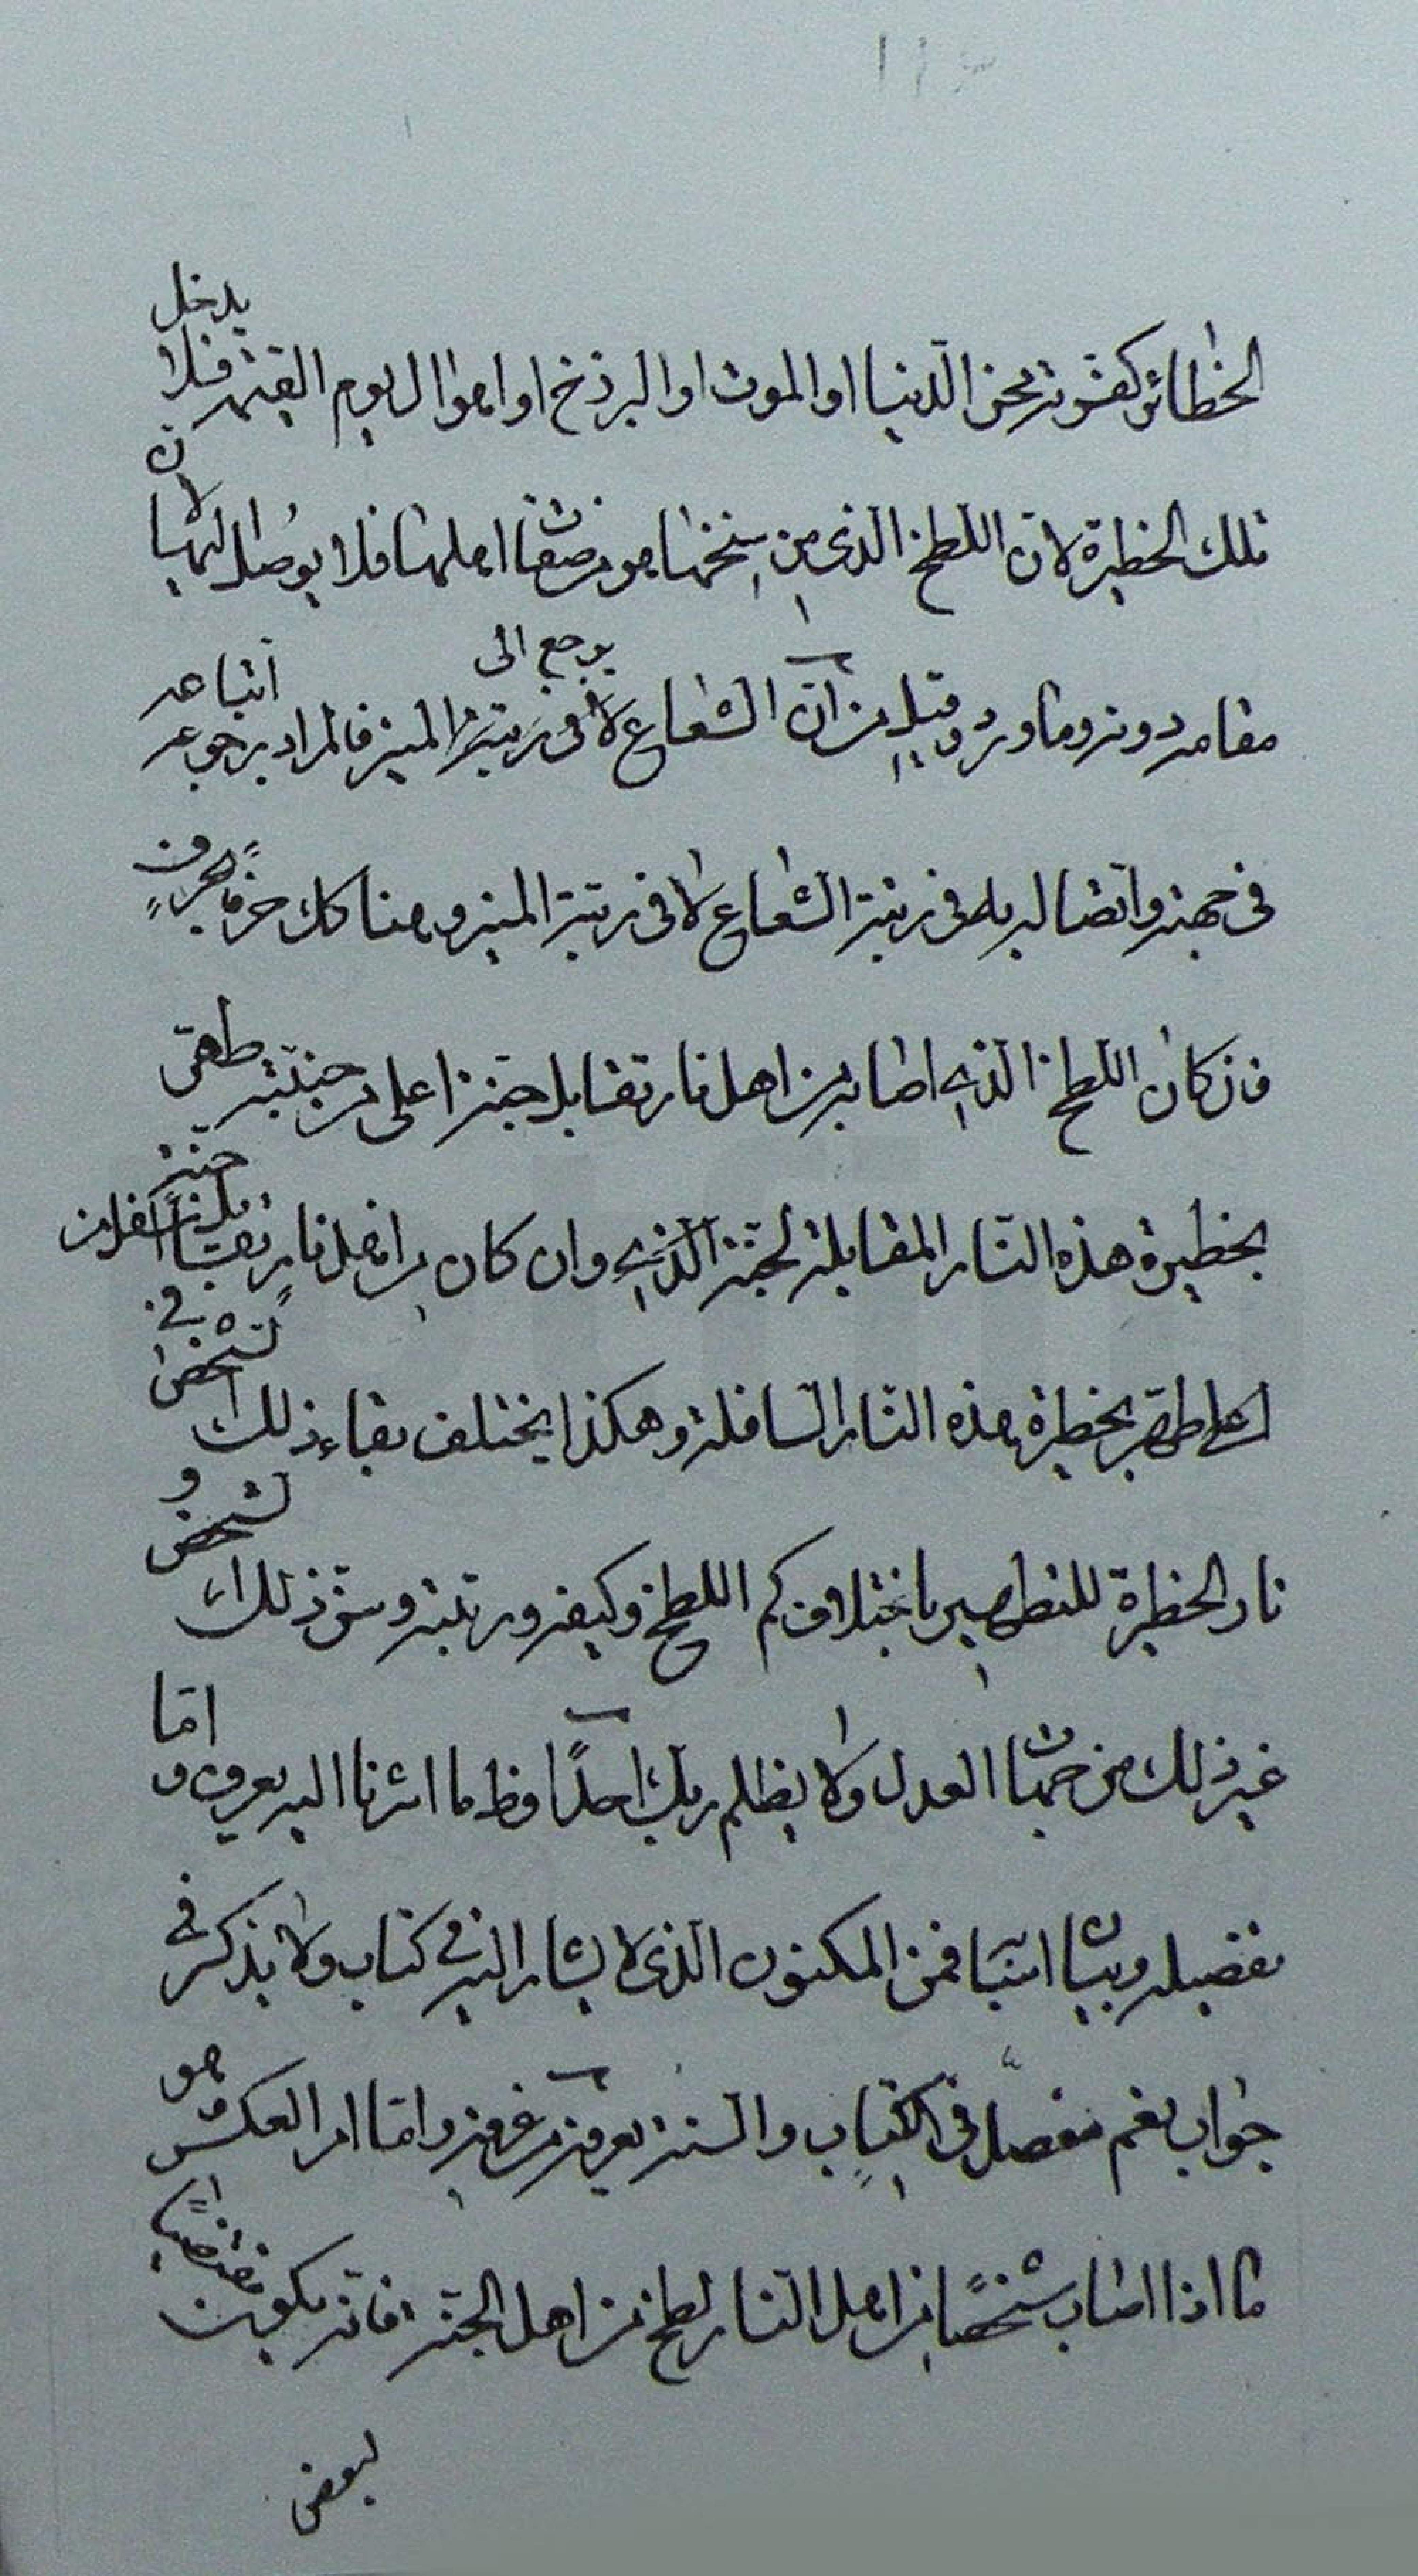 الخطائر كفته محن الدنيا او الموت او البرزخ او اهوال يوم القيمة فلا يدخل
تلك الحظيرة لان اللطخ الذى من سنخها هو من صفات اهلها فلا يوصل اليها لان
مقامه دونه وما ورد وقيل من ان الشعاع يرجع الى لا فى رتبة المنير فالمراد برجوعه اتباعه
فى جهته واتصاله به فى رتبة الشعاع لا فى رتبة المنير وهنا كك حرفا بحرف
فان كان اللطخ الذى اصابه من اهل نار تقابل جنة اعلى من جنته طهر
بحظيرة هذه النار المقابلة لجنة الذى وان كان من اهل نار تقابل جنة اسفل من
اعلى طهر بحظيرة هذه النار السافلة وهكذا يختلف بقاء ذلك الشخص فى
نار الحظيرة للتطهير باختلاف كم اللطخ وكيفه ورتبته وسن ذلك الشخص و
غير ذلك من جهات العدل ولا يظلم ربك احدا وظ ما اشرنا اليه يعرف و اما
تفصيله وبيان اسبابه فمن المكنون الذى لا يشار اليه فى كتاب ولا يذكر فى
جواب نعم مفصل فى الكتاب والسنة يعرفه من عرفه واما امر العكس وهو
ما اذا اصاب شخصا من اهل النار لطخ من اهل الجنة فانه يكون مقتضيا
لبعض